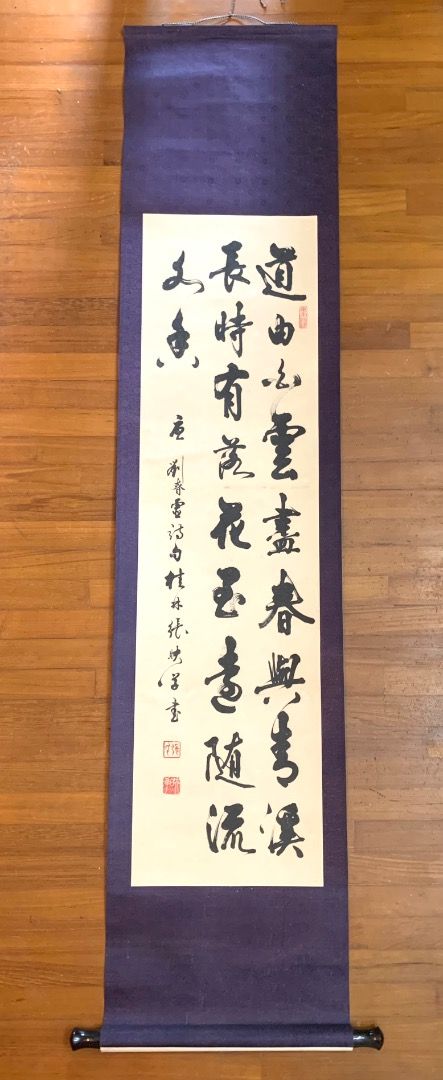 道由白雲盡春與青溪
長時有落花至遠隨流
水香 唐劉春虛詩句桂林張映學書